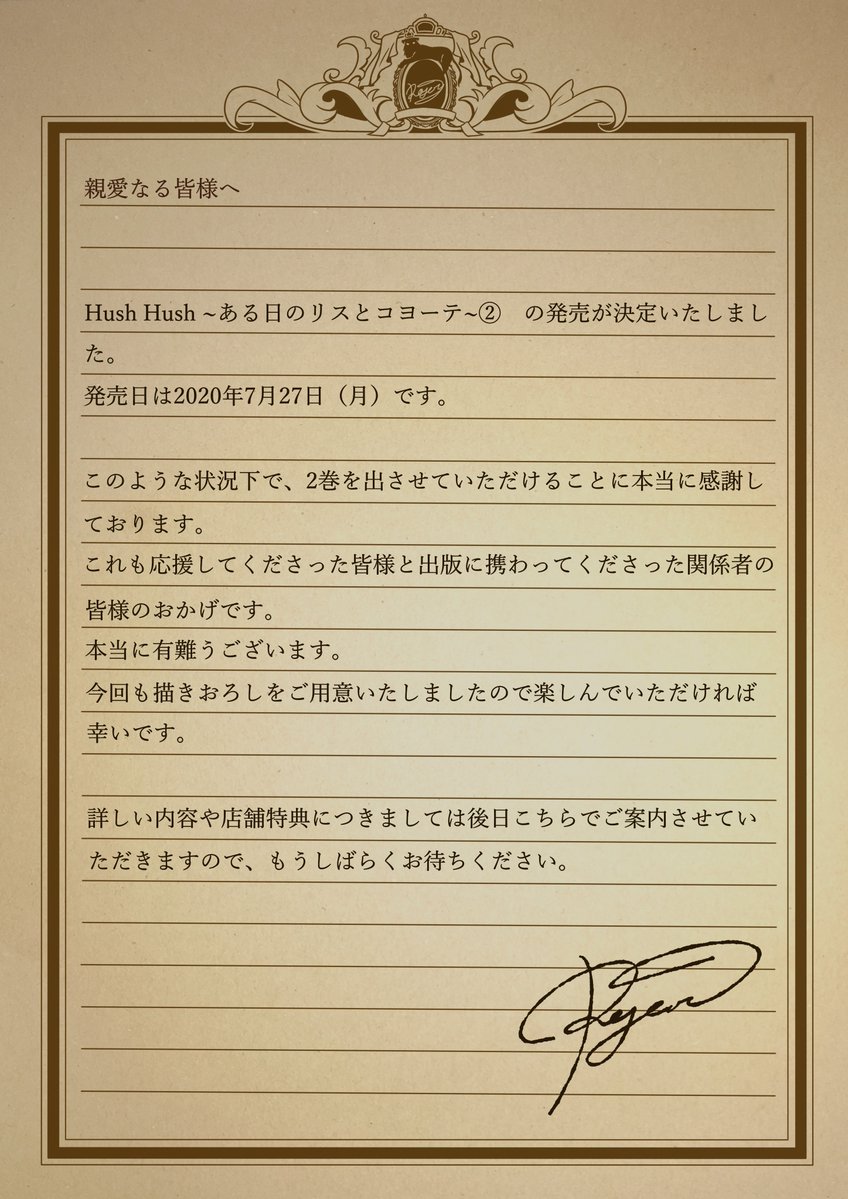 親愛なる皆様へ
Hush Hush ~ある日のリスとコヨーテ~②　の発売が決定いたしまし
た。
発売日は2020年7月27日（月）です。
このような状況下で、2巻を出させていただけることに本当に感謝し
ております。
これも応援してくださった皆様と出版に携わってくださった関係者の
皆様のおかげです。
本当に有難うございます。
今回も描きおろしをご用意いたしましたので楽しんでいただければ
幸いです。
詳しい内容や店舗特典につきましては後日こちらでご案内させてい
ただきますので、もうしばらくお待ちください。